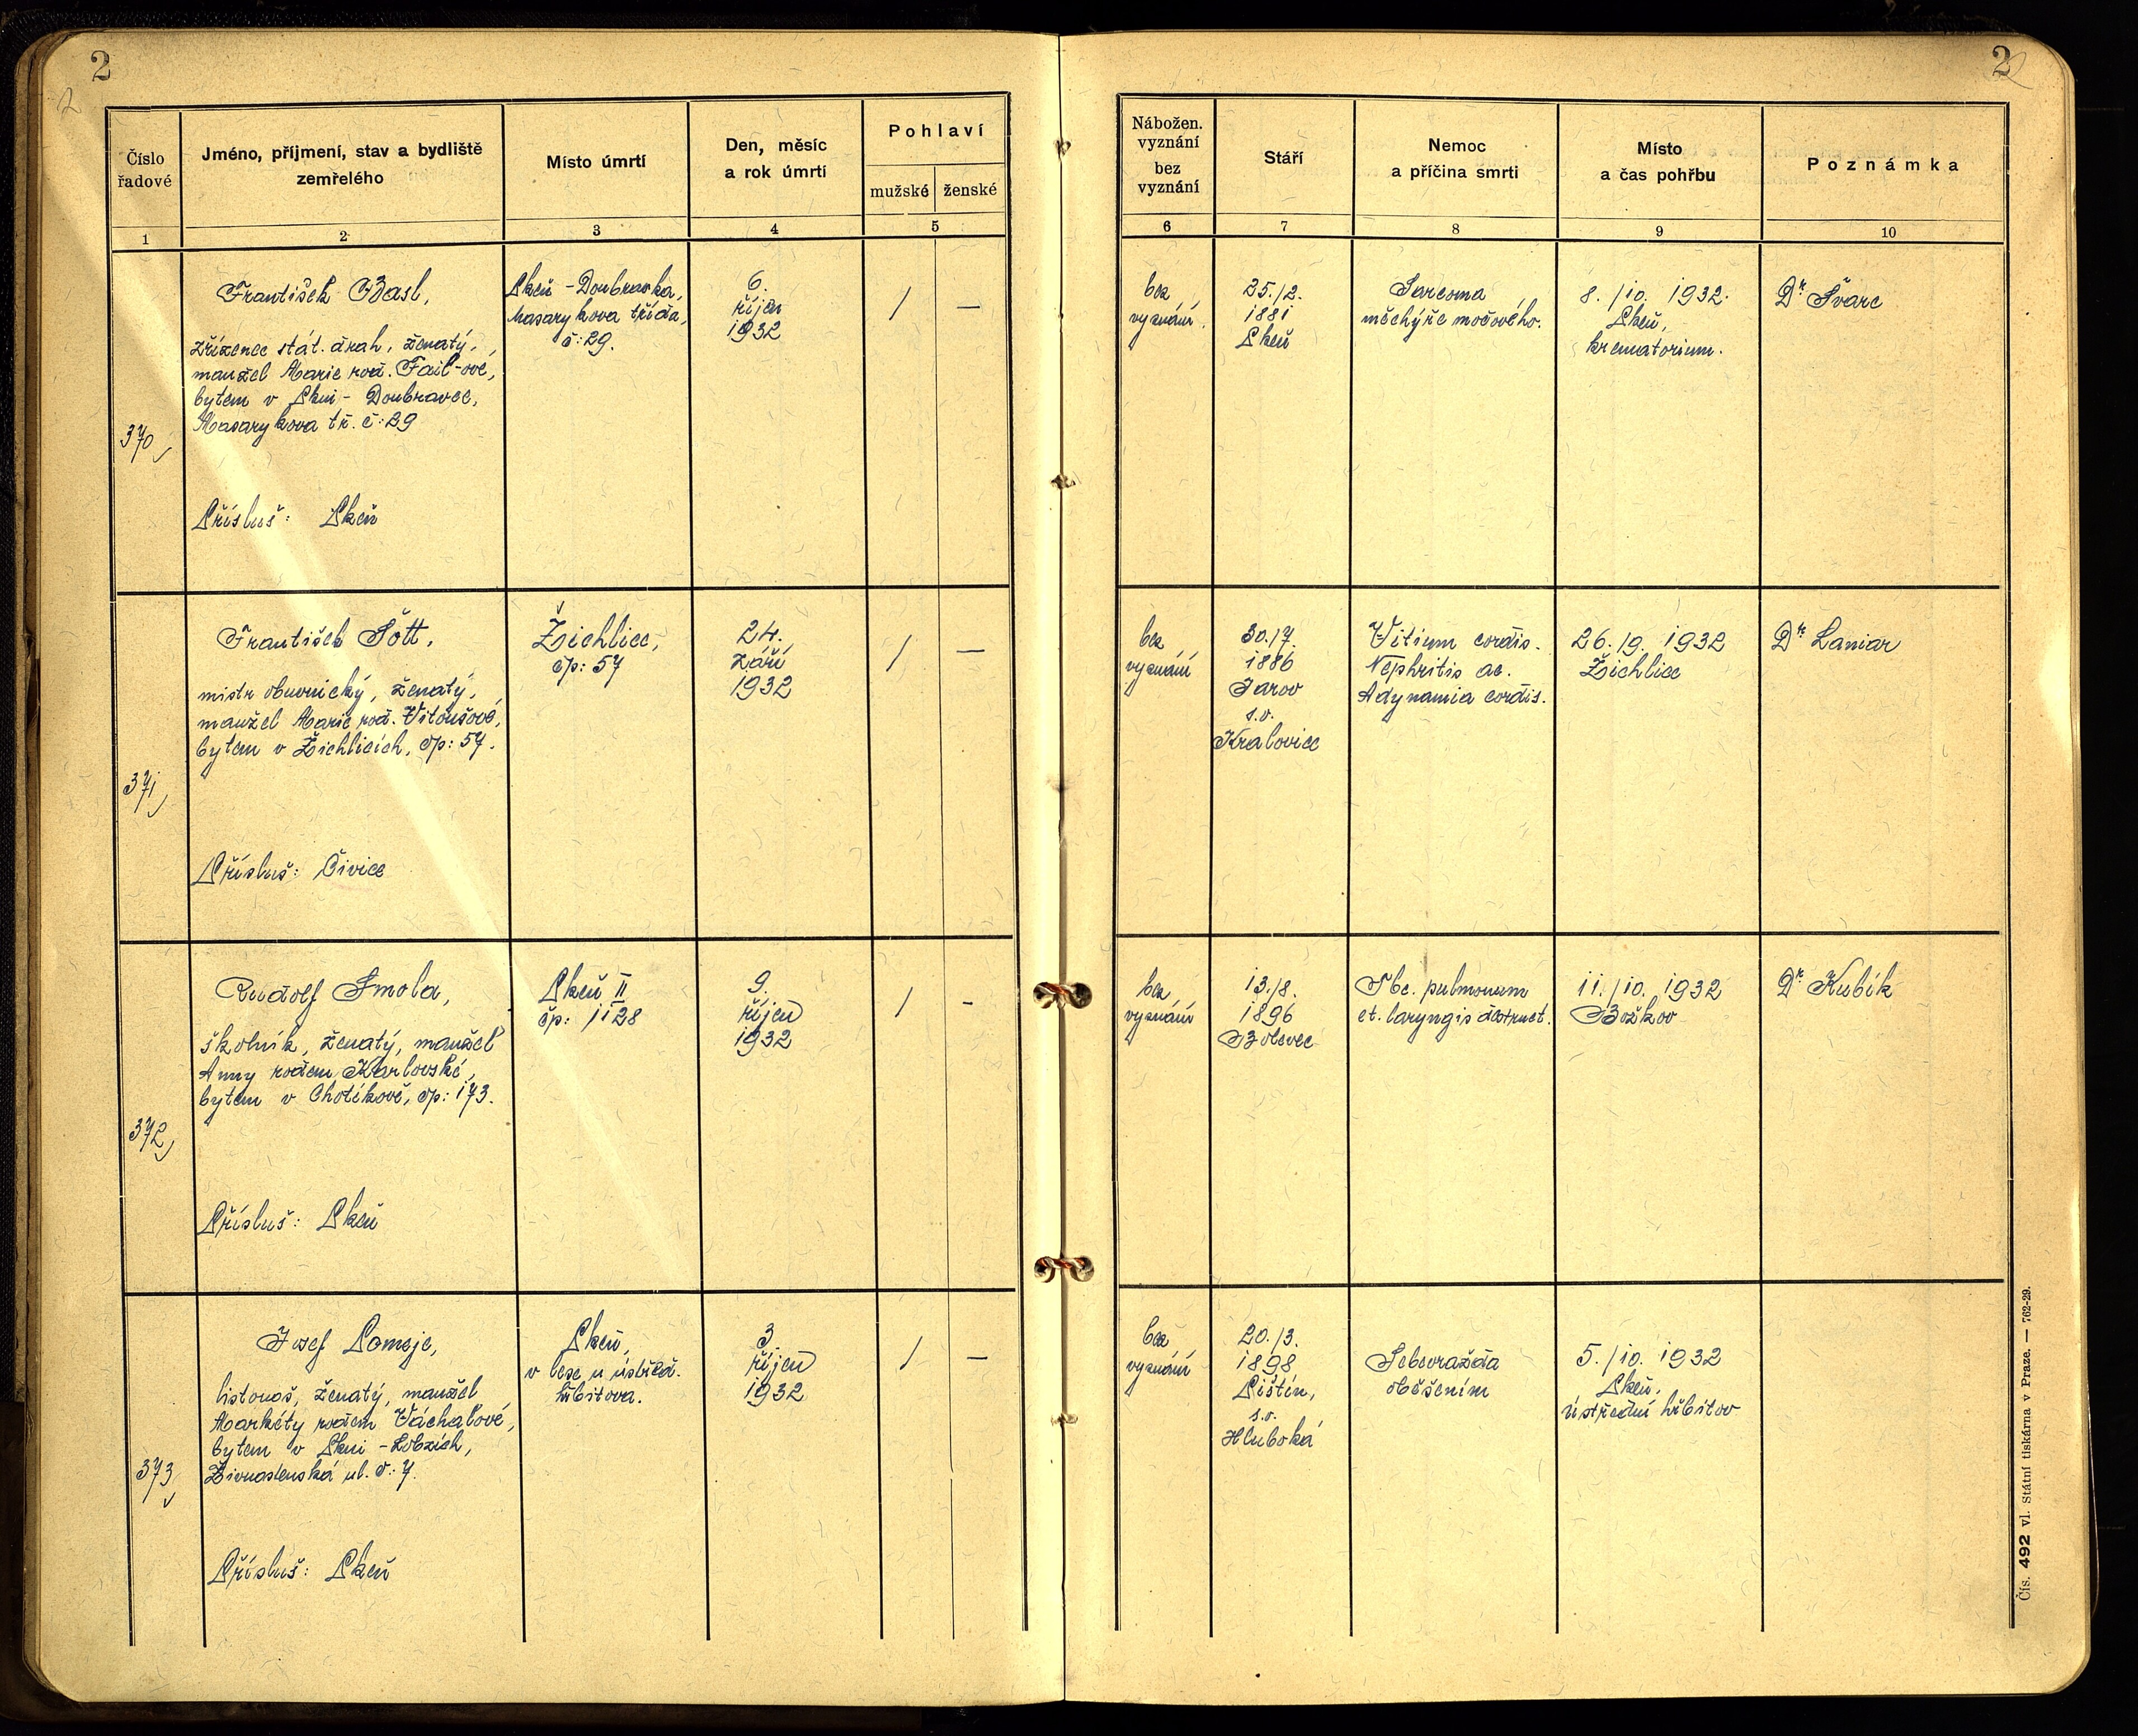 2
2
2
Číslo
řadové
Jméno, příjmení, stav a bydliště
zemřelého
Místo úmrtí
Den, měsíc
a rok úmrtí
Pohlaví
mužské
ženské
1
2
3
4
5
370
František Basl,
zřízenec stát. drah, ženatý,
manžel Marie roz. Fait-ové,
bytem v Plzni - Doubravce,
Masarykova tř. č: 29
Přísluš: Plzeň
Plzeň - Doubravka,
Masarykova třída,
č: 29.
6.
říjen
1932
/ —
371
František Šott,
mistr obuvnický, ženatý,
manžel Marie roz. Vitoušové,
bytem v Žichlicích, čp: 57.
Přísluš: Čivice
Žichlice,
čp: 57
24.
září
1932
/ —
372
Rudolf Smola,
školník, ženatý, manžel
Anny rozem Karlovské,
bytem v Chotíkově, čp: 173.
Přísluš: Plzeň
Plzeň II
čp: 1128
9.
říjen
1932
/ -
373
Josef Pomeje,
listonoš, ženatý, manžel
Markéty rozem Váchalové,
bytem v Plzni - Lobzích,
Živnostenská ul. č: 7.
Přísluš: Plzeň
Plzeň,
v lese u ústřed.
hřbitova.
3.
říjen
1932
/ —
2
Nábožen.
vyznání
bez
vyznání
Stáří
Nemoc
a příčina smrti
Místo
a čas pohřbu
Poznámka
6
7
8
9
10
bez
vyznání.
25./2.
1881
Plzeň
Sarcoma
měchýře močového.
8./10. 1932.
Plzeň,
krematorium.
Dr Švarc
bez
vyznání
30./7.
1886
Jarov
s.o.
Kralovice
Vitium cordis.
Nephritis ac.
Adynamia cordis.
26./9. 1932
Žichlice
Dr Laniar
bez
vyznání
13./8.
1896
Bolevec
Tbc. pulmonum
et. laryngis destruct.
11./10. 1932
Božkov
Dr Kubík
bez
vyznání
20./3.
1898
Pištín,
s.o.
Hluboká
Sebevražda
oběšením
5./10. 1932
Plzeň,
ústřední hřbitov
Čís. 492 vl. Státní tiskárna v Praze. — 762-29.